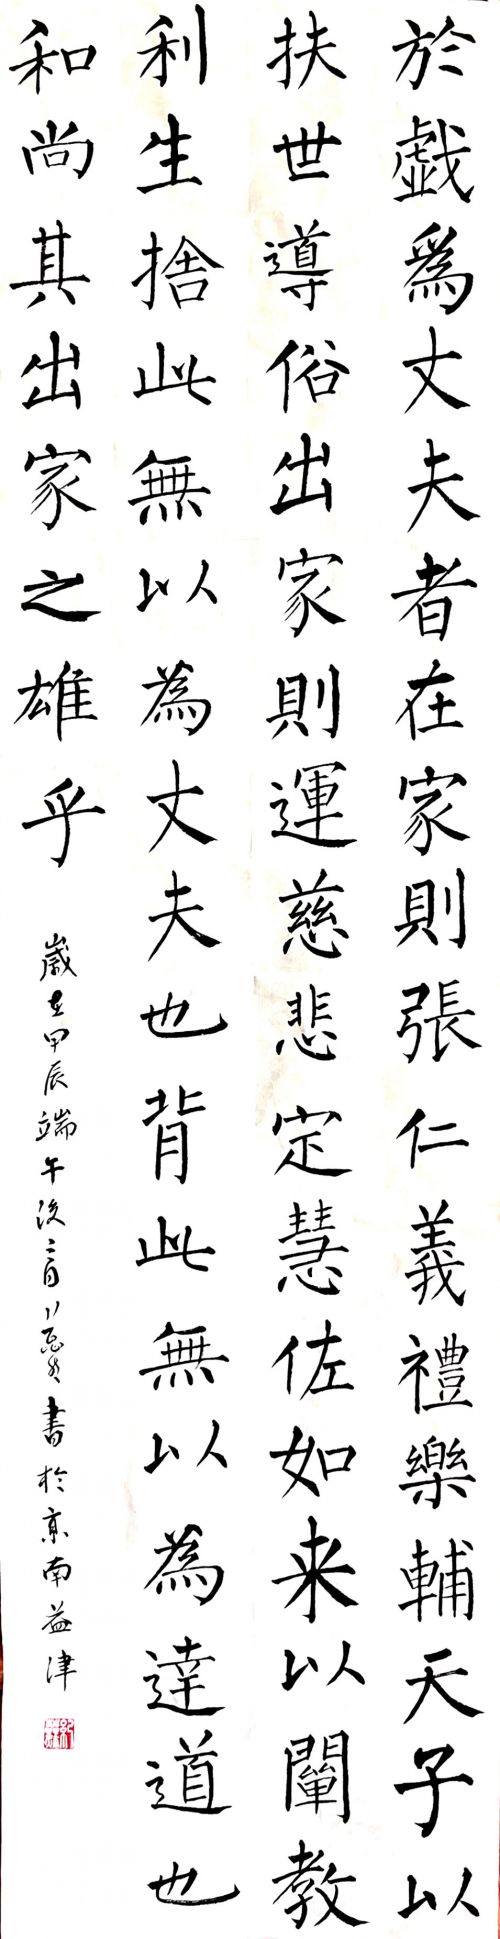 於戯爲丈夫者在家則張仁義禮樂輔天子以
扶世導俗出家則運慈悲定慧佐如来以闡教
利生捨此無以為丈夫也背此無以為達道也
和尚其出家之雄乎
歲在甲辰端午後二日
書於京南益津